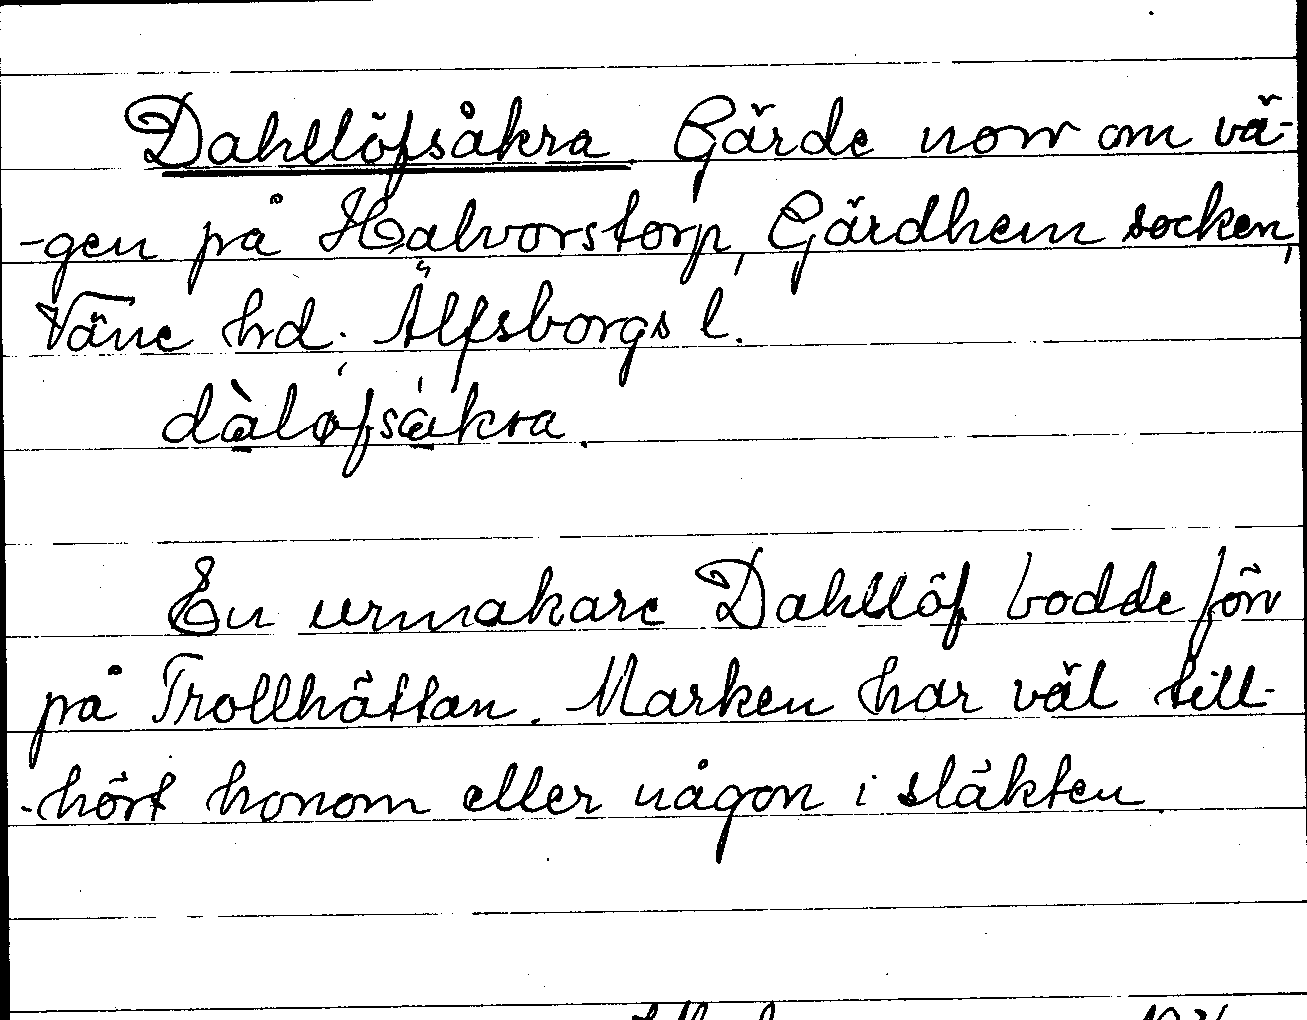 Dahllöfsåkra. Gärde norr om vä-
-gen på Halvorstorp, Gärdhem socken,
Väne hd. Älfsborgs l.
dàløfsåkra.
En urmakare Dahllöf bodde förr
på Trollhättan. Marken har väl till-
-hört honom eller någon i släkten.